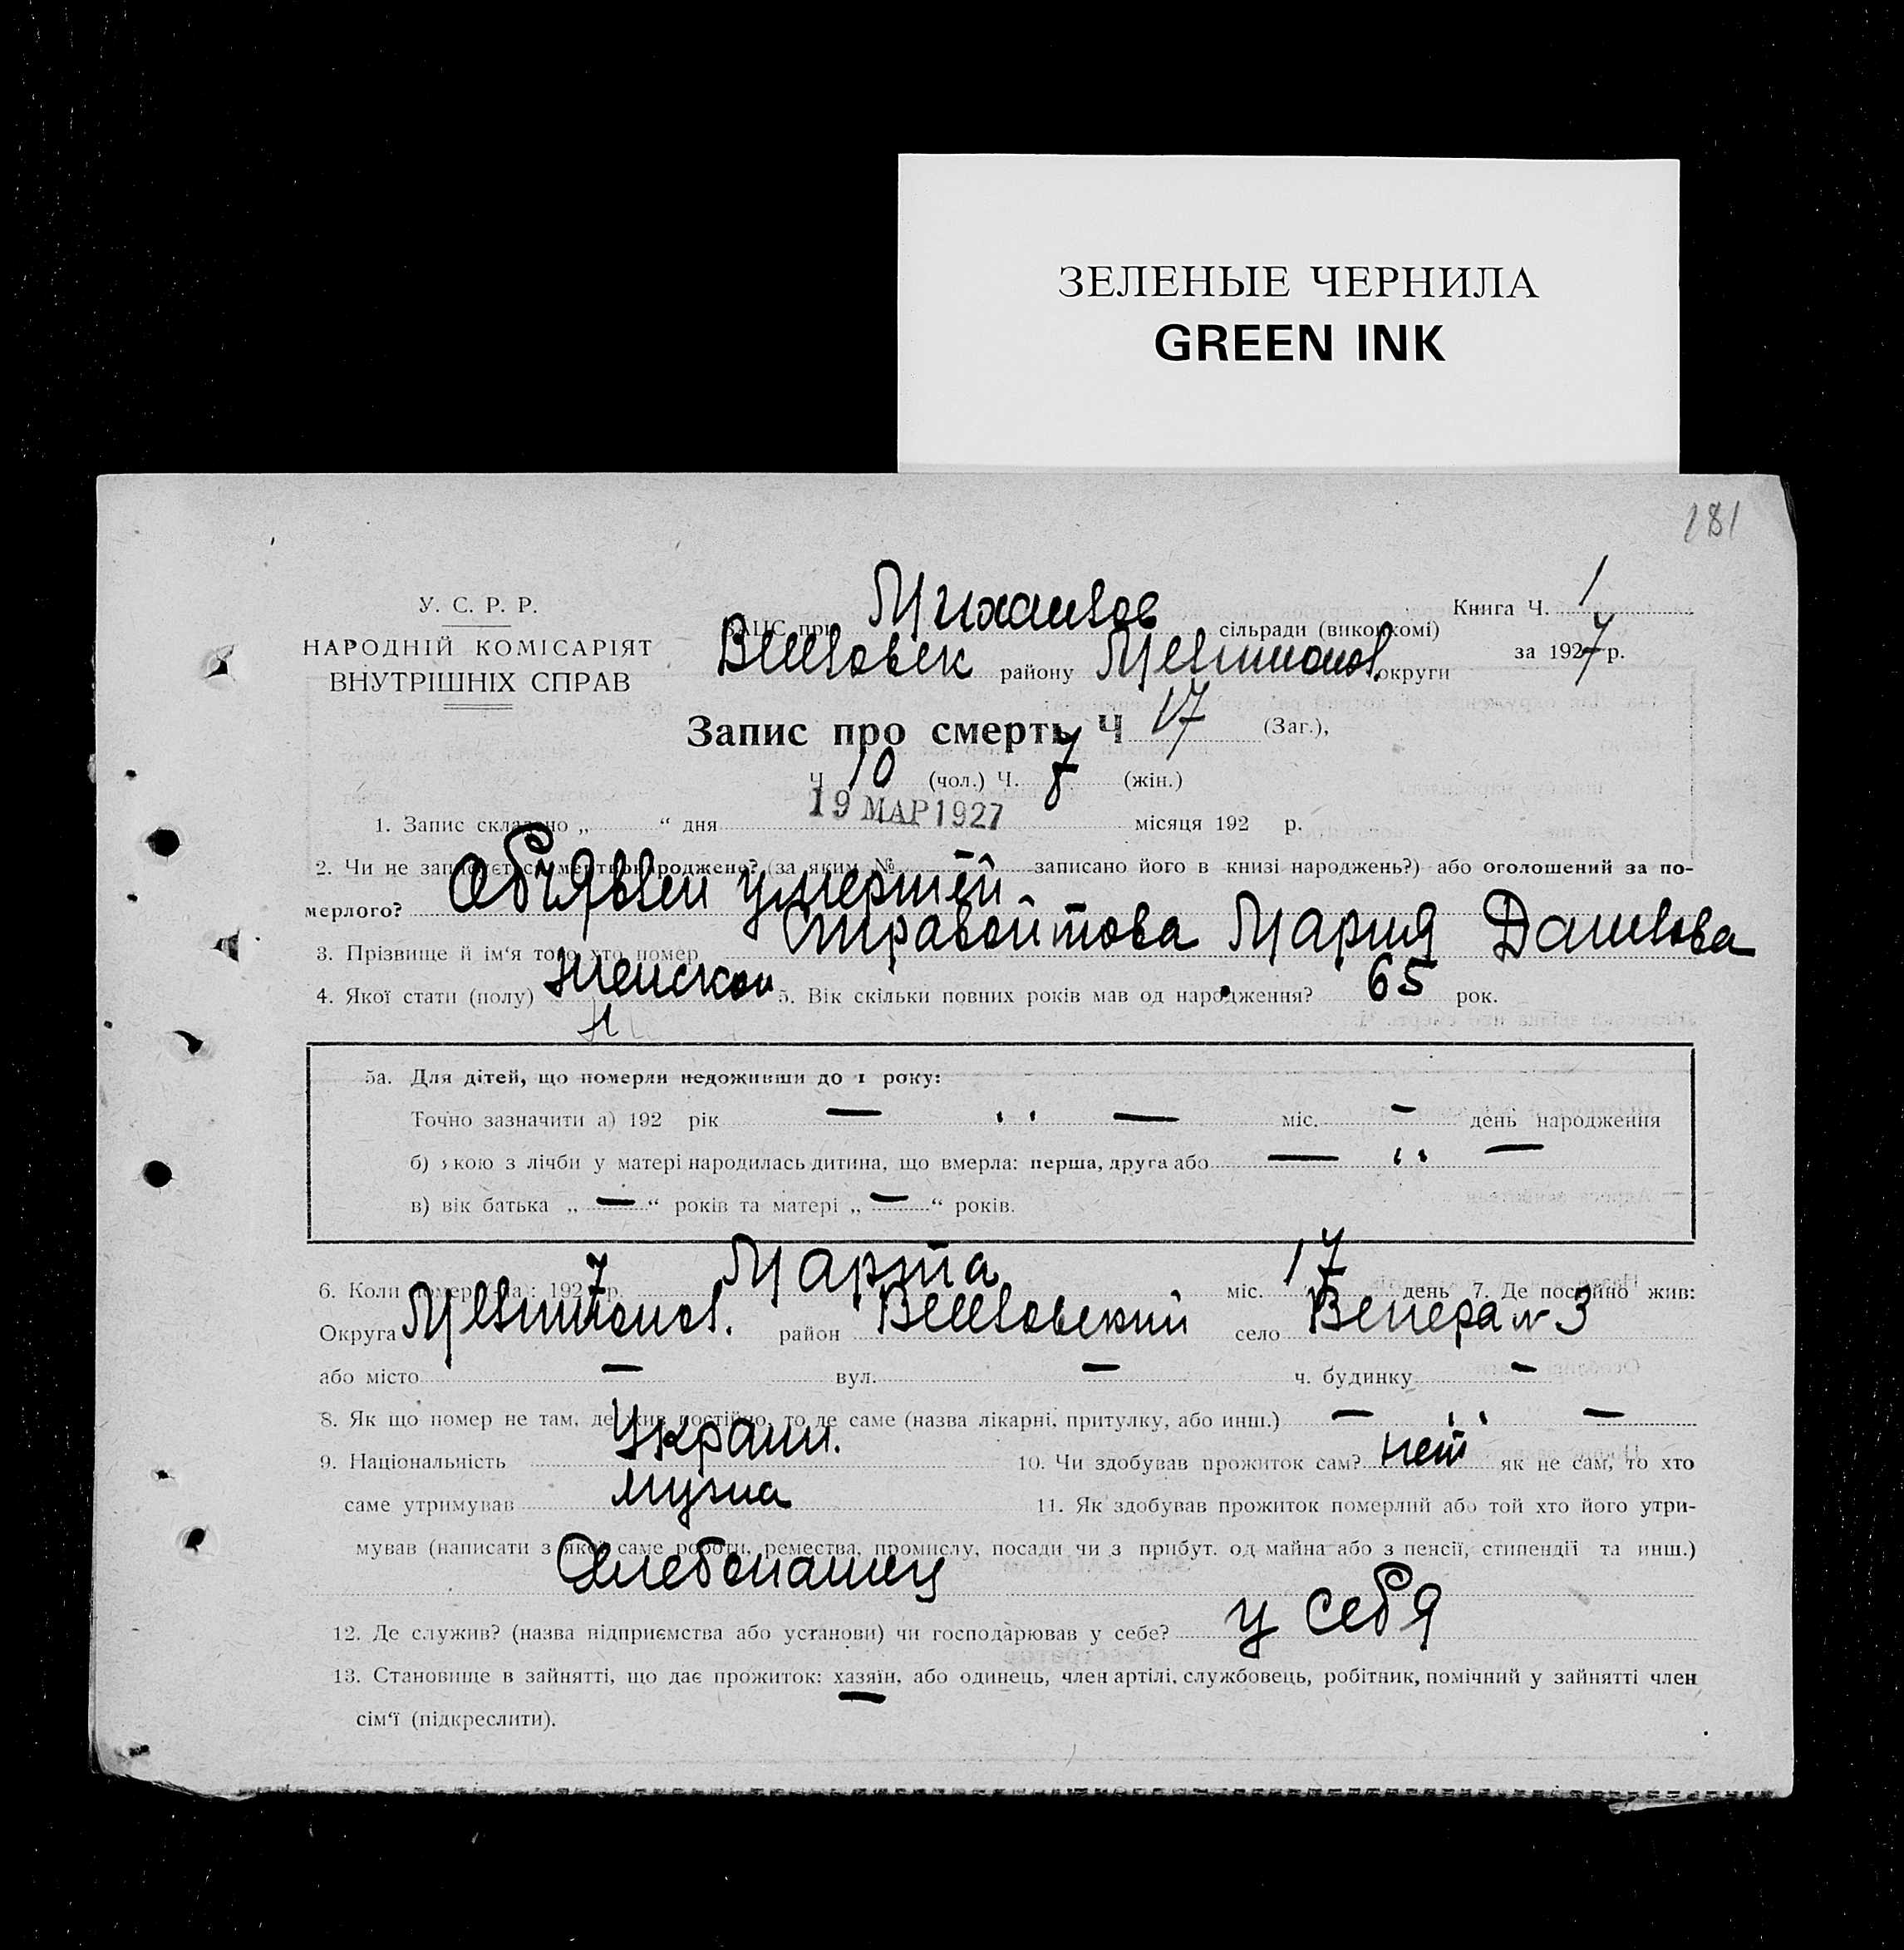 ЗЕЛЕНЫЕ ЧЕРНИЛА
GREEN INK
181
У. С. Р. Р.
НАРОДНІЙ КОМІСАРІЯТ
ВНУТРІШНІХ СПРАВ
ЗАЦС при Михайлов сільради (виконкомі)
району Мелитопол. округи
Книга Ч. 1
за 1927 р.
Запис про смерть Ч 17 (Заг.),
Ч 10 (чол.) Ч. 7 (жін.)
1. Запис складено „ “ дня 19 МАР 1927 місяця 192 р.
2. Чи не записується мертвонароджене? (за яким № записано його в книзі народжень?) або оголошений за по-
мерлого? Объявлен умершей
3. Прізвище й ім'я того, хто помер Мария Данилова
4. Якої стати (полу) Женской 5. Вік скільки повних років мав од народження? 65 рок.
5а. Для дітей, що померли недоживши до 1 року:
Точно зазначити а) 192 рік — „ — міс. — день народження
б) якою з лічби у матері народилась дитина, що вмерла: перша, друга або — „ —
в) вік батька „ — “ років та матері „ — “ років.
6. Коли помер(ла): 1927 р. Марта міс. 17 день 7. Де постійно жив:
Округа Мелитопол. район село Венера № 3
або місто — вул. — ч. будинку —
8. Як що помер не там, де жив постійно, то де саме (назва лікарні, притулку, або инш.) — „ —
9. Національність Украин. 10. Чи здобував прожиток сам? нет як не сам, то хто
саме утримував мужа 11. Як здобував прожиток померлий або той хто його утри-
мував (написати з якої саме роботи, ремества, промислу, посади чи з прибут. од майна або з пенсії, стипендії та инш.)
Хлебопашец
12. Де служив? (назва підприємства або установи) чи господарював у себе? у себя
13. Становище в зайнятті, що дає прожиток: хазяїн, або одинець, член артілі, службовець, робітник, помічний у зайнятті член
сім'ї (підкреслити).